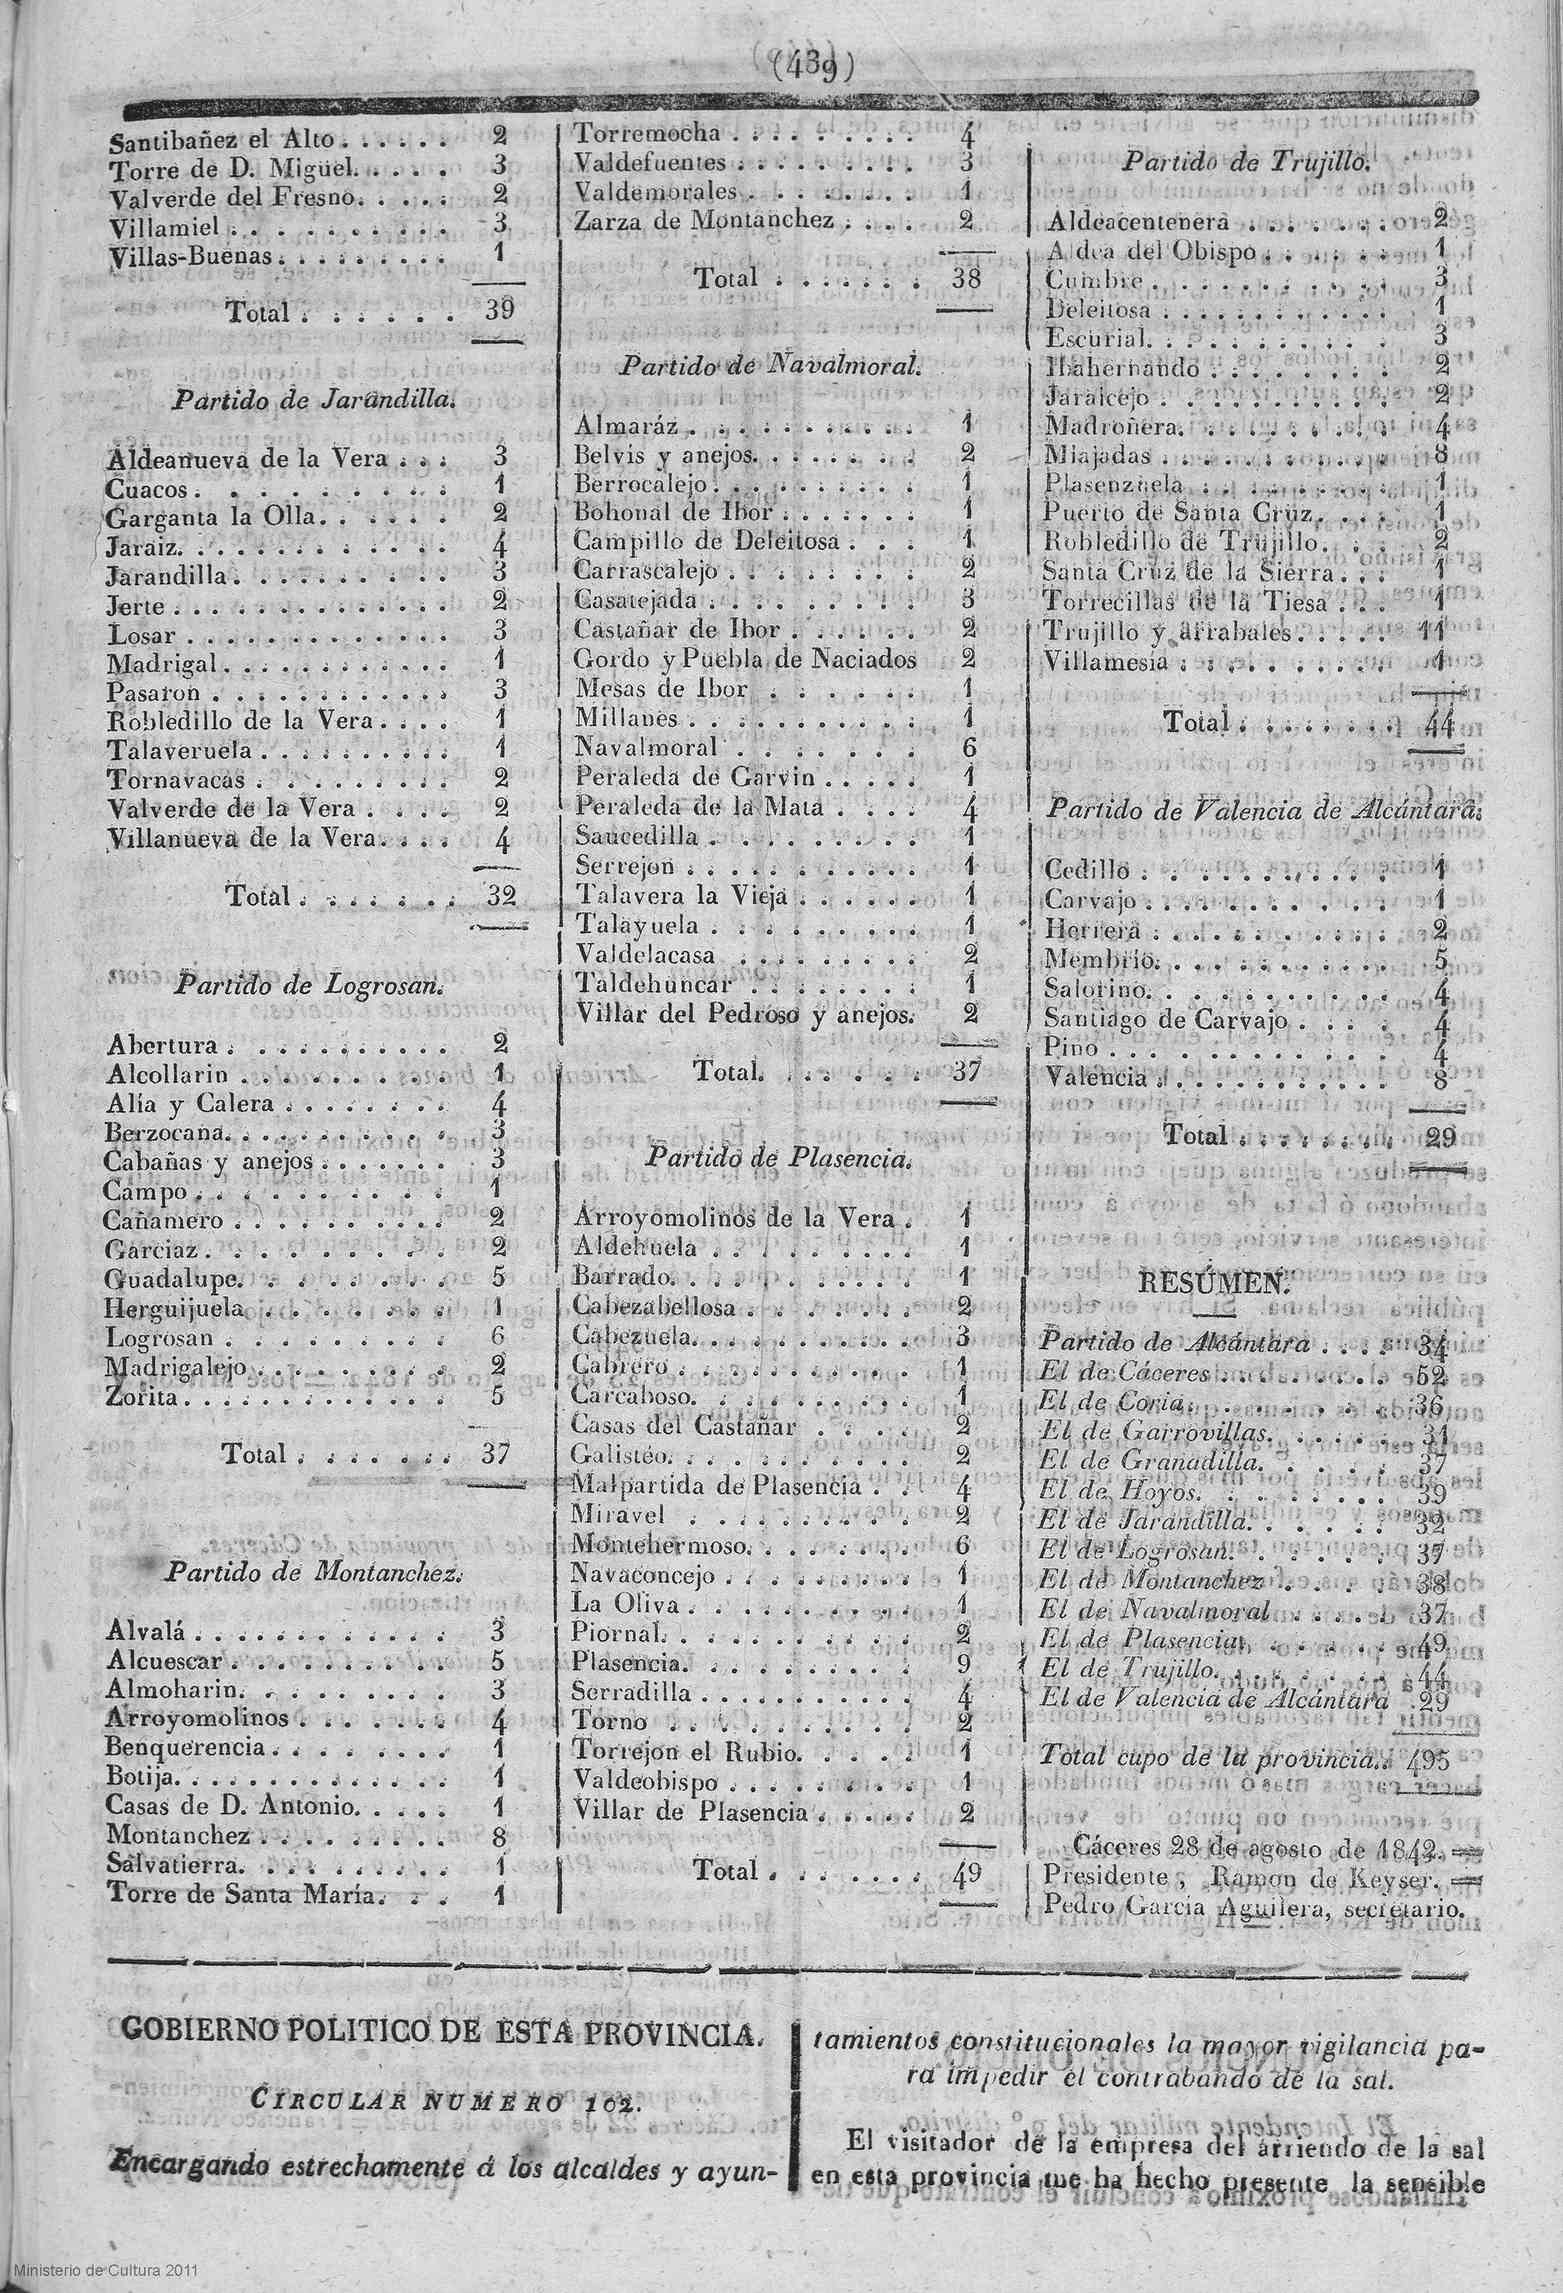 (439)
Santibañez el Alto . . . . . . 2
Torre de D. Miguel. . . . . 3
Valverde del Fresno. . . . . 2
Villamiel . . . . . . . . . . 3
Villas-Buenas. . . . . . . . . 1
Total . . . . . . 39
Partido de Jarandilla.
Aldeanueva de la Vera . . . 3
Cuacos . . . . . . . . . . 1
Garganta la Olla. . . . . . 2
Jaraiz. . . . . . . . . . . . 4
Jarandilla. . . . . . . . . . 3
Jerte . . . . . . . . . . . . . 2
Losar . . . . . . . . . . . . 3
Madrigal. . . . . . . . . . . 1
Pasaron . . . . . . . . . . . 3
Robledillo de la Vera. . . . 1
Talaveruela . . . . . . . . . 1
Tornavacas . . . . . . . . . 2
Valverde de la Vera . . . . 2
Villanueva de la Vera. . . . 4
Total . . . . . . . 32
Partido de Logrosan.
Abertura . . . . . . . . . . 2
Alcollarin . . . . . . . . . . 1
Alía y Calera . . . . . . . . 4
Berzocana. . . . . . . . . . 3
Cabañas y anejos . . . . . . . 3
Campo . . . . . . . . . . . 1
Cañamero . . . . . . . . . . 2
Garciaz . . . . . . . . . . . 2
Guadalupe. . . . . . . . . . 5
Herguijuela . . . . . . . . . 1
Logrosan . . . . . . . . . . 6
Madrigalejo . . . . . . . . . 2
Zorita. . . . . . . . . . . . . 5
Total . . . . . . . 37
Partido de Montanchez.
Alvalá . . . . . . . . . . . . 3
Alcuescar . . . . . . . . . . 5
Almoharin. . . . . . . . . . 3
Arroyomolinos . . . . . . . 4
Benquerencia . . . . . . . . 1
Botija. . . . . . . . . . . . . 1
Casas de D. Antonio. . . . . 1
Montanchez . . . . . . . . . 8
Salvatierra. . . . . . . . . . 1
Torre de Santa María. . . . 1
Torremocha . . . . . . . . . 4
Valdefuentes . . . . . . . . . 3
Valdemorales . . . . . . . . 1
Zarza de Montanchez . . . . 2
Total . . . . . . . 38
Partido de Navalmoral.
Almaráz . . . . . . . . . . . 1
Belvis y anejos. . . . . . . . 2
Berrocalejo . . . . . . . . . . 1
Bohonal de Ibor . . . . . . . 1
Campillo de Deleitosa . . . 1
Carrascalejo . . . . . . . . . 2
Casatejada . . . . . . . . . . 3
Castañar de Ibor . . . . . . 2
Gordo y Puebla de Naciados 2
Mesas de Ibor . . . . . . . 1
Millanes . . . . . . . . . . . 1
Navalmoral . . . . . . . . . 6
Peraleda de Garvin . . . . . 1
Peraleda de la Mata . . . . 4
Saucedilla . . . . . . . . . . 1
Serrejon . . . . . . . . . . . 1
Talavera la Vieja . . . . . . 1
Talayuela . . . . . . . . . . 1
Valdelacasa . . . . . . . . . 2
Taldehuncar . . . . . . . . 1
Villar del Pedroso y anejos. 2
Total. . . . . . . 37
Partido de Plasencia.
Arroyomolinos de la Vera . 1
Aldehuela . . . . . . . . . . 1
Barrado. . . . . . . . . . . . 1
Cabezabellosa . . . . . . . . 2
Cabezuela. . . . . . . . . . . 3
Cabrero . . . . . . . . . . . 1
Carcaboso. . . . . . . . . . . 1
Casas del Castañar . . . . 2
Galistéo. . . . . . . . . . . . 2
Malpartida de Plasencia . . 4
Miravel . . . . . . . . . . . 2
Montehermoso. . . . . . . . 6
Navaconcejo . . . . . . . . . 1
La Oliva . . . . . . . . . . . 1
Piornal. . . . . . . . . . . . 2
Plasencia. . . . . . . . . . . 9
Serradilla . . . . . . . . . . 4
Torno . . . . . . . . . . . . 2
Torrejon el Rubio. . . . . 1
Valdeobispo . . . . . . . . . 1
Villar de Plasencia . . . . . 2
Total . . . . . . . 49
Partido de Trujillo.
Aldeacentenera . . . . . . . 2
Aldea del Obispo . . . . . . 1
Cumbre . . . . . . . . . . . 3
Deleitosa . . . . . . . . . . . 1
Escurial. . . . . . . . . . . . 3
Ibahernando . . . . . . . . . 2
Jaraicejo . . . . . . . . . . . 2
Madroñera. . . . . . . . . . 4
Miajadas . . . . . . . . . . . 8
Plasenzuela . . . . . . . . . 1
Puerto de Santa Cruz. . . . 1
Robledillo de Trujillo. . . . 2
Santa Cruz de la Sierra. . . 1
Torrecillas de la Tiesa . . . 1
Trujillo y arrabales. . . . . 11
Villamesía . . . . . . . . . . 1
Total . . . . . . . 44
Partido de Valencia de Alcántara.
Cedillo . . . . . . . . . . . . 1
Carvajo . . . . . . . . . . . . 1
Herrera . . . . . . . . . . . 2
Membrio. . . . . . . . . . . 5
Salorino. . . . . . . . . . . 4
Santiago de Carvajo . . . . 4
Pino . . . . . . . . . . . . . 4
Valencia . . . . . . . . . . . 8
Total . . . . . . . . 29
RESÚMEN.
Partido de Alcántara . . . . 34
El de Cáceres . . . . . . . . 52
El de Coria. . . . . . . . . . 36
El de Garrovillas. . . . . . 31
El de Granadilla. . . . . . 37
El de Hoyos. . . . . . . . . 39
El de Jarandilla. . . . . . 32
El de Logrosan. . . . . . . 37
El de Montanchez . . . . . 38
El de Navalmoral . . . . . 37
El de Plasencia. . . . . . . 49
El de Trujillo. . . . . . . . 44
El de Valencia de Alcántara . 29
Total cupo de la provincia. . 495
Cáceres 28 de agosto de 1842. =
Presidente, Ramon de Keyser. =
Pedro Garcia Aguilera, secretario.
GOBIERNO POLITICO DE ESTA PROVINCIA.
CIRCULAR NUMERO 102.
Encargando estrechamente á los alcaldes y ayun-
tamientos constitucionales la mayor vigilancia pa-
ra impedir el contrabando de la sal.
El visitador de la empresa del arriendo de la sal
en esta provincia me ha hecho presente la sensible
Ministerio de Cultura 2011